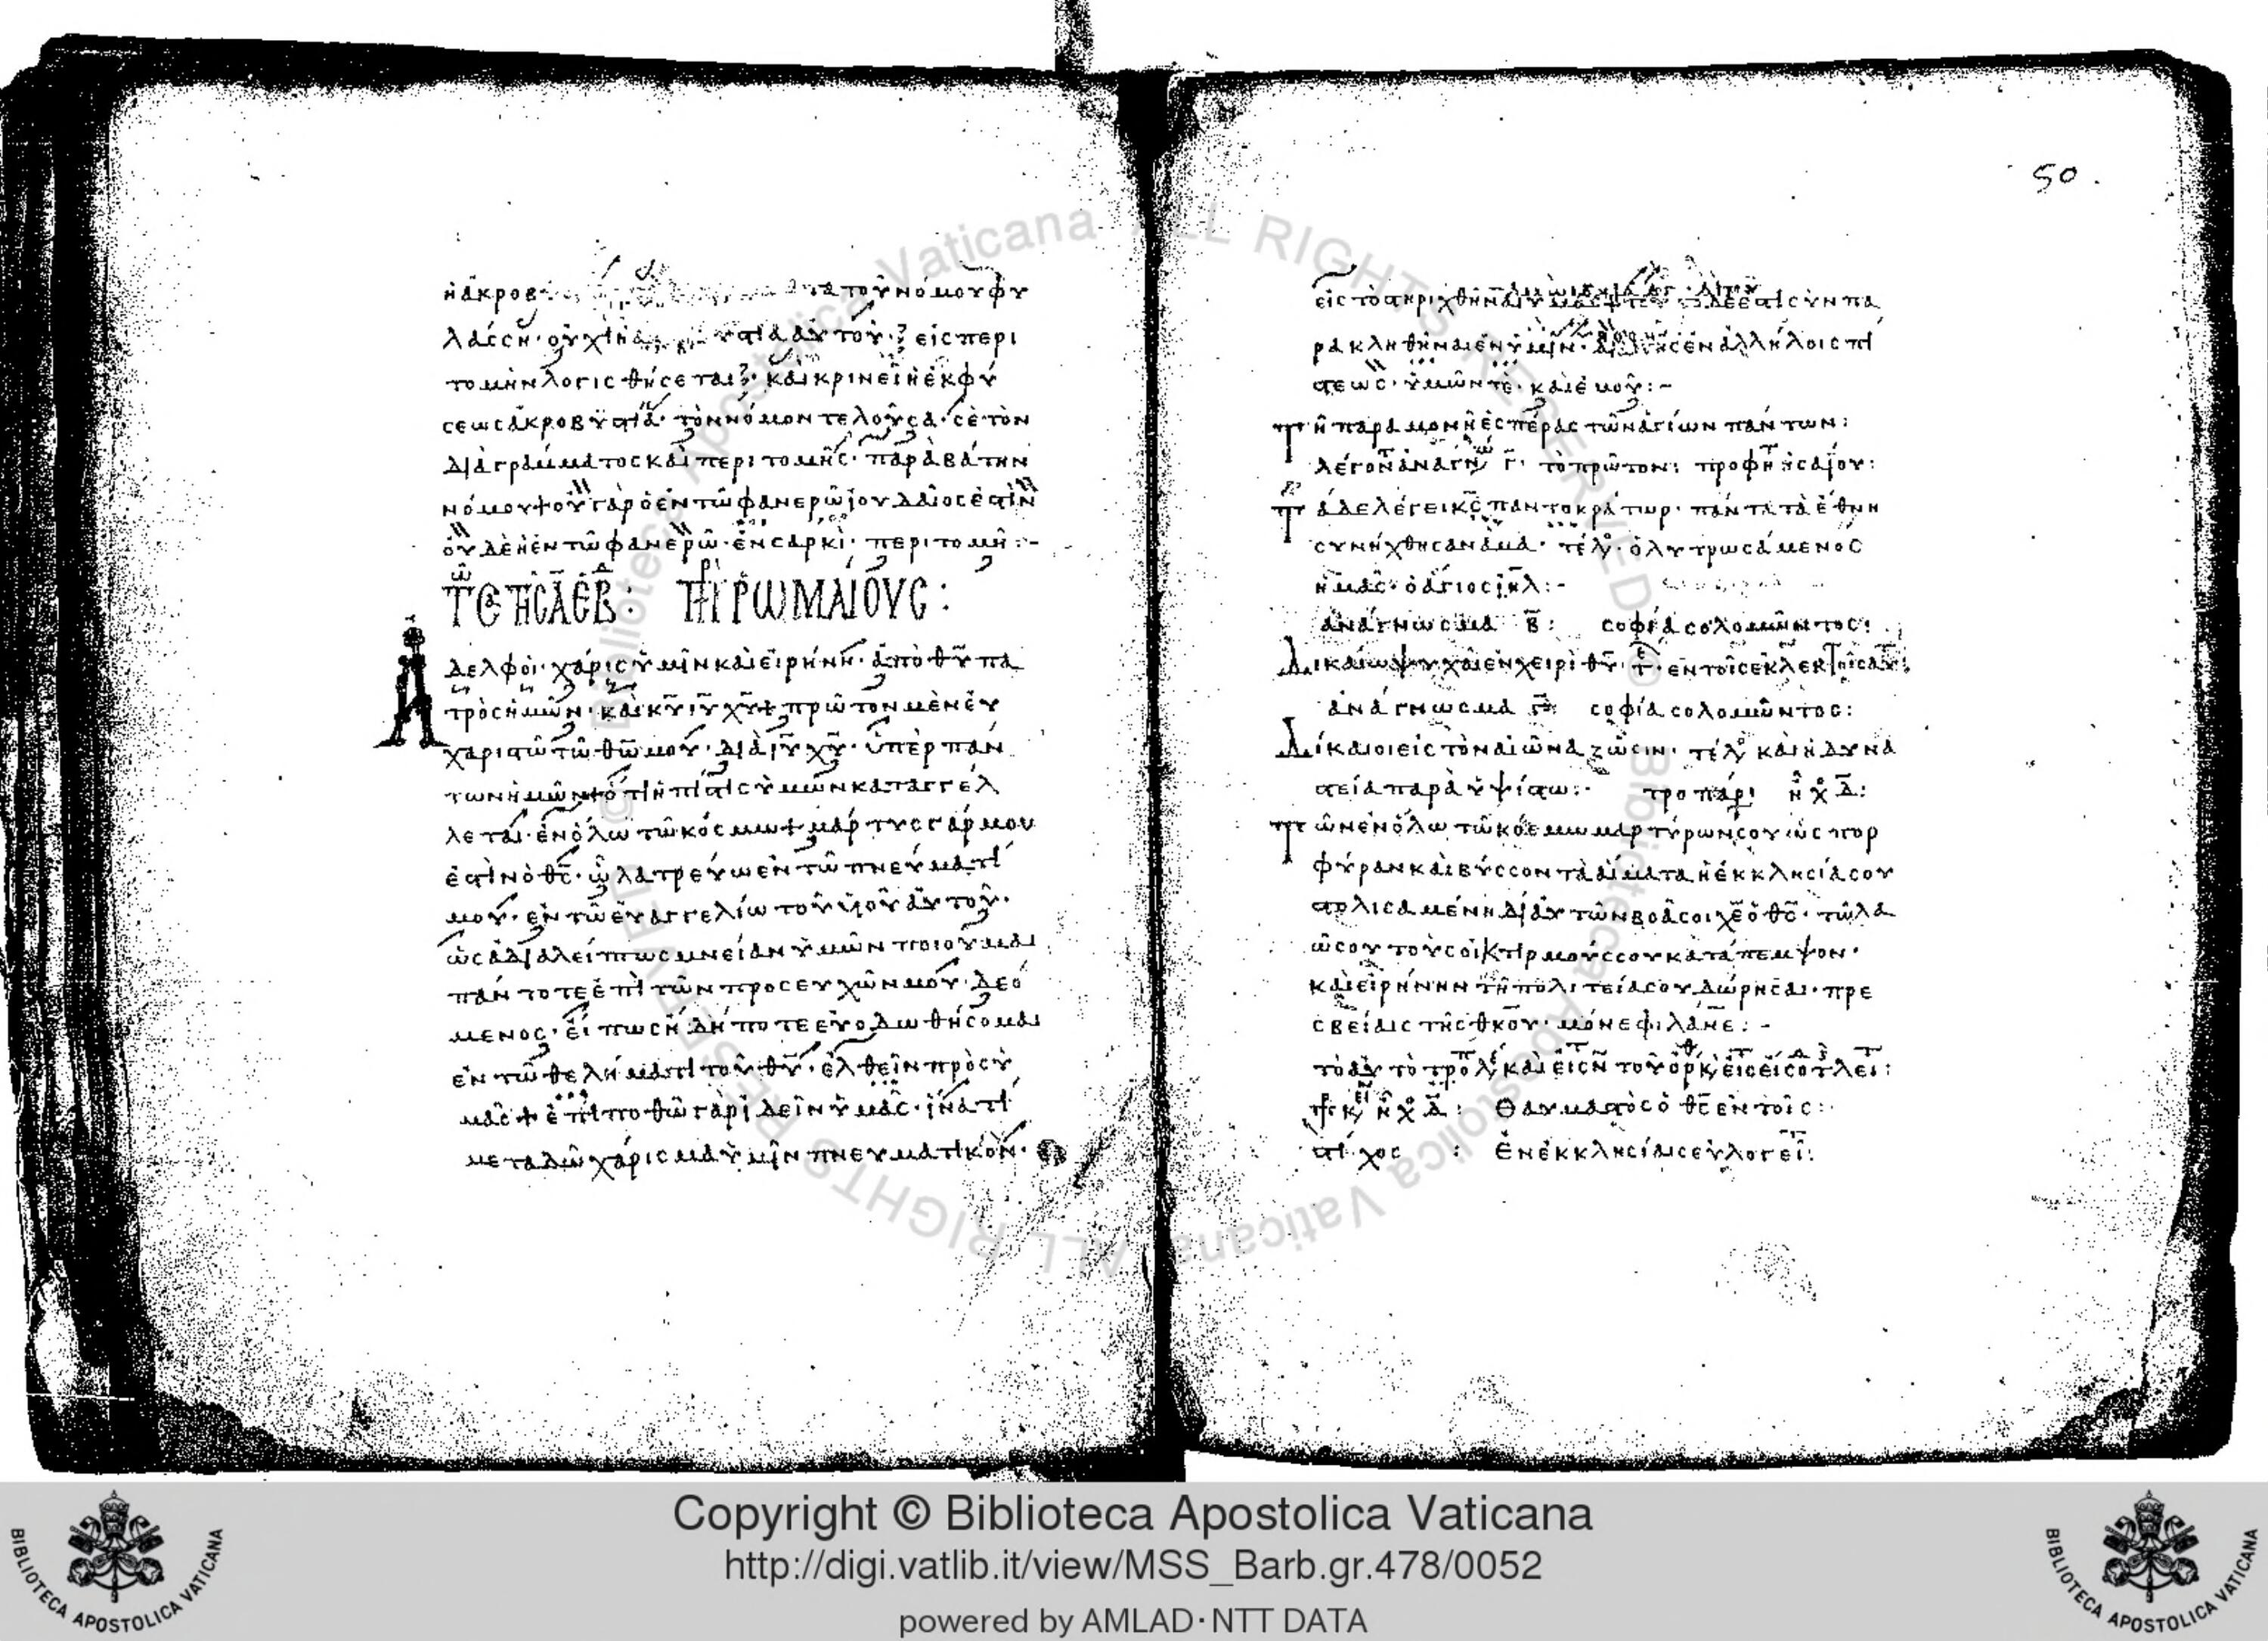 ἡ ἀκροβ τα τοῦ νόμου φυ
λάσση· οὐχὶ ἡ αὐτοῦ· εἰς περι
τομὴν λογισθήσεται· καὶ κρινεῖ ἡ ἐκ φύ
σεως ἀκροβυστία· τὸν νόμον τελοῦσα· σὲ τὸν
διὰ γράμματος καὶ περιτομῆς· παραβάτην
νόμου οὐ γὰρ ὁ ἐν τῶ φανερῶ ἰουδαῖος ἐστὶν
οὐδὲ ἡ ἐν τῶ φανερῶ· ἐν σαρκί· περιτομή:-
ῥωμαίους:
Ἀδελφοί· χάρις ὑμῖν καὶ εἰρήνη· ἀπὸ θυ πα
τρὸς ἡμῶν· καὶ κυ ιυ χυ πρῶτον μὲν εὐ
χαριστῶ τῶ θω μου· διὰ ιυ χυ· ὑπὲρ πάν
των ἡμῶν ὅτι ἡ πίστις ὑμῶν καταγγέλ
λεται· ἐν ὅλω τῶ κόσμω μάρτυς γάρ μου
ἐστὶν ὁ θς· ὧ λατρεύω ἐν τῶ πνεύματί
μου· ἐν τῶ εὐαγγελίω τοῦ υἱοῦ αὐτοῦ·
ὡς ἀδιαλείπτως μνείαν ὑμῶν ποιοῦμαι
πάντοτε ἐπὶ τῶν προσευχῶν μου· δεό
μενος· εἴ πως ἤδη ποτε εὐοδωθήσομαι
ἐν τῶ θελήματι τοῦ θυ· ἐλθεῖν πρὸς ὑ
μᾶς ἐπιποθῶ γὰρ ἰδεῖν ὑμᾶς· ἵνα τι
μεταδῶ χάρισμα ὑμῖν πνευματικόν·
50.
εἰς τὸ στηριχθῆναι ὑμᾶς τοῦτο δέ ἐστι συνπα
ρακληθῆναι ἐν ὑμῖν· διὰ τῆς ἐν ἀλλήλοις πί
στεως· ὑμῶν τε· καὶ ἐμοῦ:-
τῆ παραμονῆ ἑσπέρας τῶν ἁγίων πάντων:
λέγον ἀναγν γ· τὸ πρῶτον: προφη ἡσαΐου:
τάδε λέγει κς παντοκράτωρ· πάντα τὰ ἔθνη
συνήχθησαν ἅμα· τέλ· ὁ λυτρωσάμενος
ἡμᾶς· ὁ ἅγιος ιηλ:-
ἀνάγνωσμα β: σοφία σολομῶντος:
Δικαίων ψυχαὶ ἐν χειρὶ θυ· τ· ἐν τοῖς ἐκλεκτοῖς αυ:
ἀνάγνωσμα γ: σοφία σολομῶντος:
Δίκαιοι εἰς τὸν αἰῶνα ζῶσιν· τέλ καὶ ἡ δυνα
στεία παρὰ ὑψίστω:- τροπάρ ηχ δ:
τῶν ἐν ὅλω τῶ κόσμω μαρτύρων σου ὡς πορ
φύραν καὶ βύσσον τὰ αἵματα ἡ ἐκκλησία σου
στολισαμένη δι' αὐτῶν βοᾶ σοι χε ὁ θς· τῶ λα
ῶ σου τοὺς οἰκτιρμούς σου κατάπεμψον·
καὶ εἰρήνην τῆ πολιτεία σου δώρησαι· πρε
σβείαις τῆς θκου· μόνε φιλανε:-
τὸ αὐτὸ τροπ καὶ εἰς τοῦ ὄρθ
ηχ δ: Θαυμαστὸς ὁ θς ἐν τοῖς:
στίχος : Ἐν ἐκκλησίαις εὐλογεῖ:
Copyright © Biblioteca Apostolica Vaticana
http://digi.vatlib.it/view/MSS_Barb.gr.478/0052
powered by AMLAD·NTT DATA